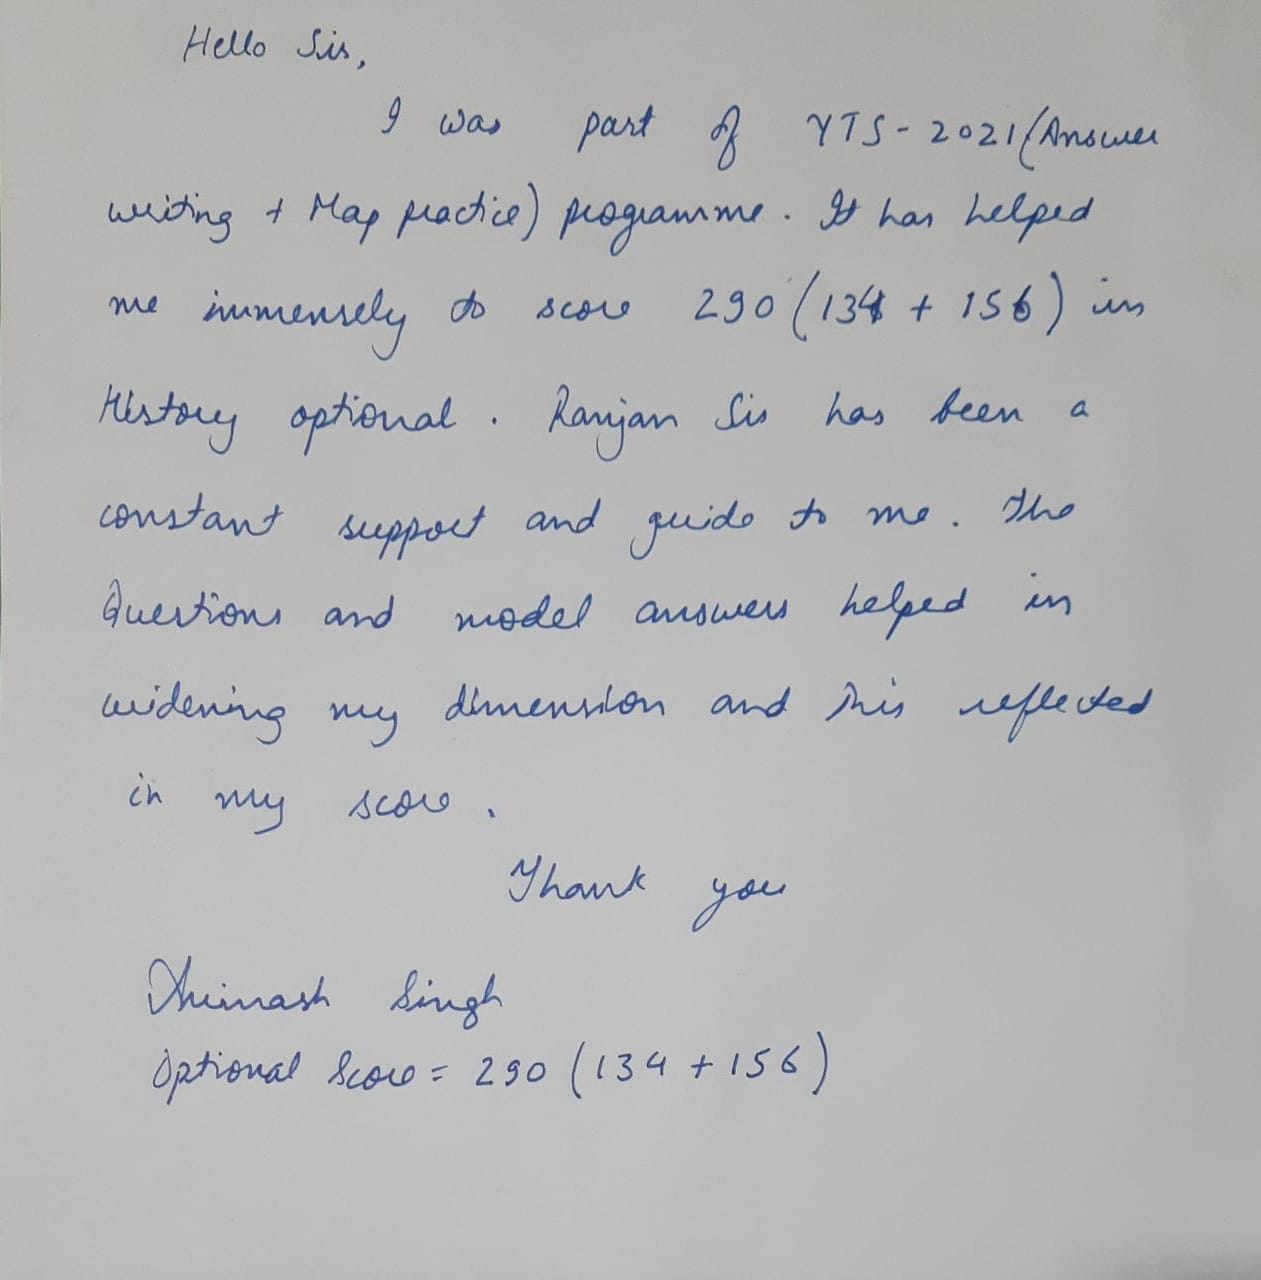 Hello Sir,
I was part of YTS-2021 (Answer
writing + Map practice) programme. It has helped
me immensely to score 290 (134 + 156) in
History optional. Ranjan Sir has been a
constant support and guide to me. The
Questions and model answers helped in
widening my dimension and this reflected
in my score.
Thank you
Avinash Singh
Optional Score = 290 (134 + 156)